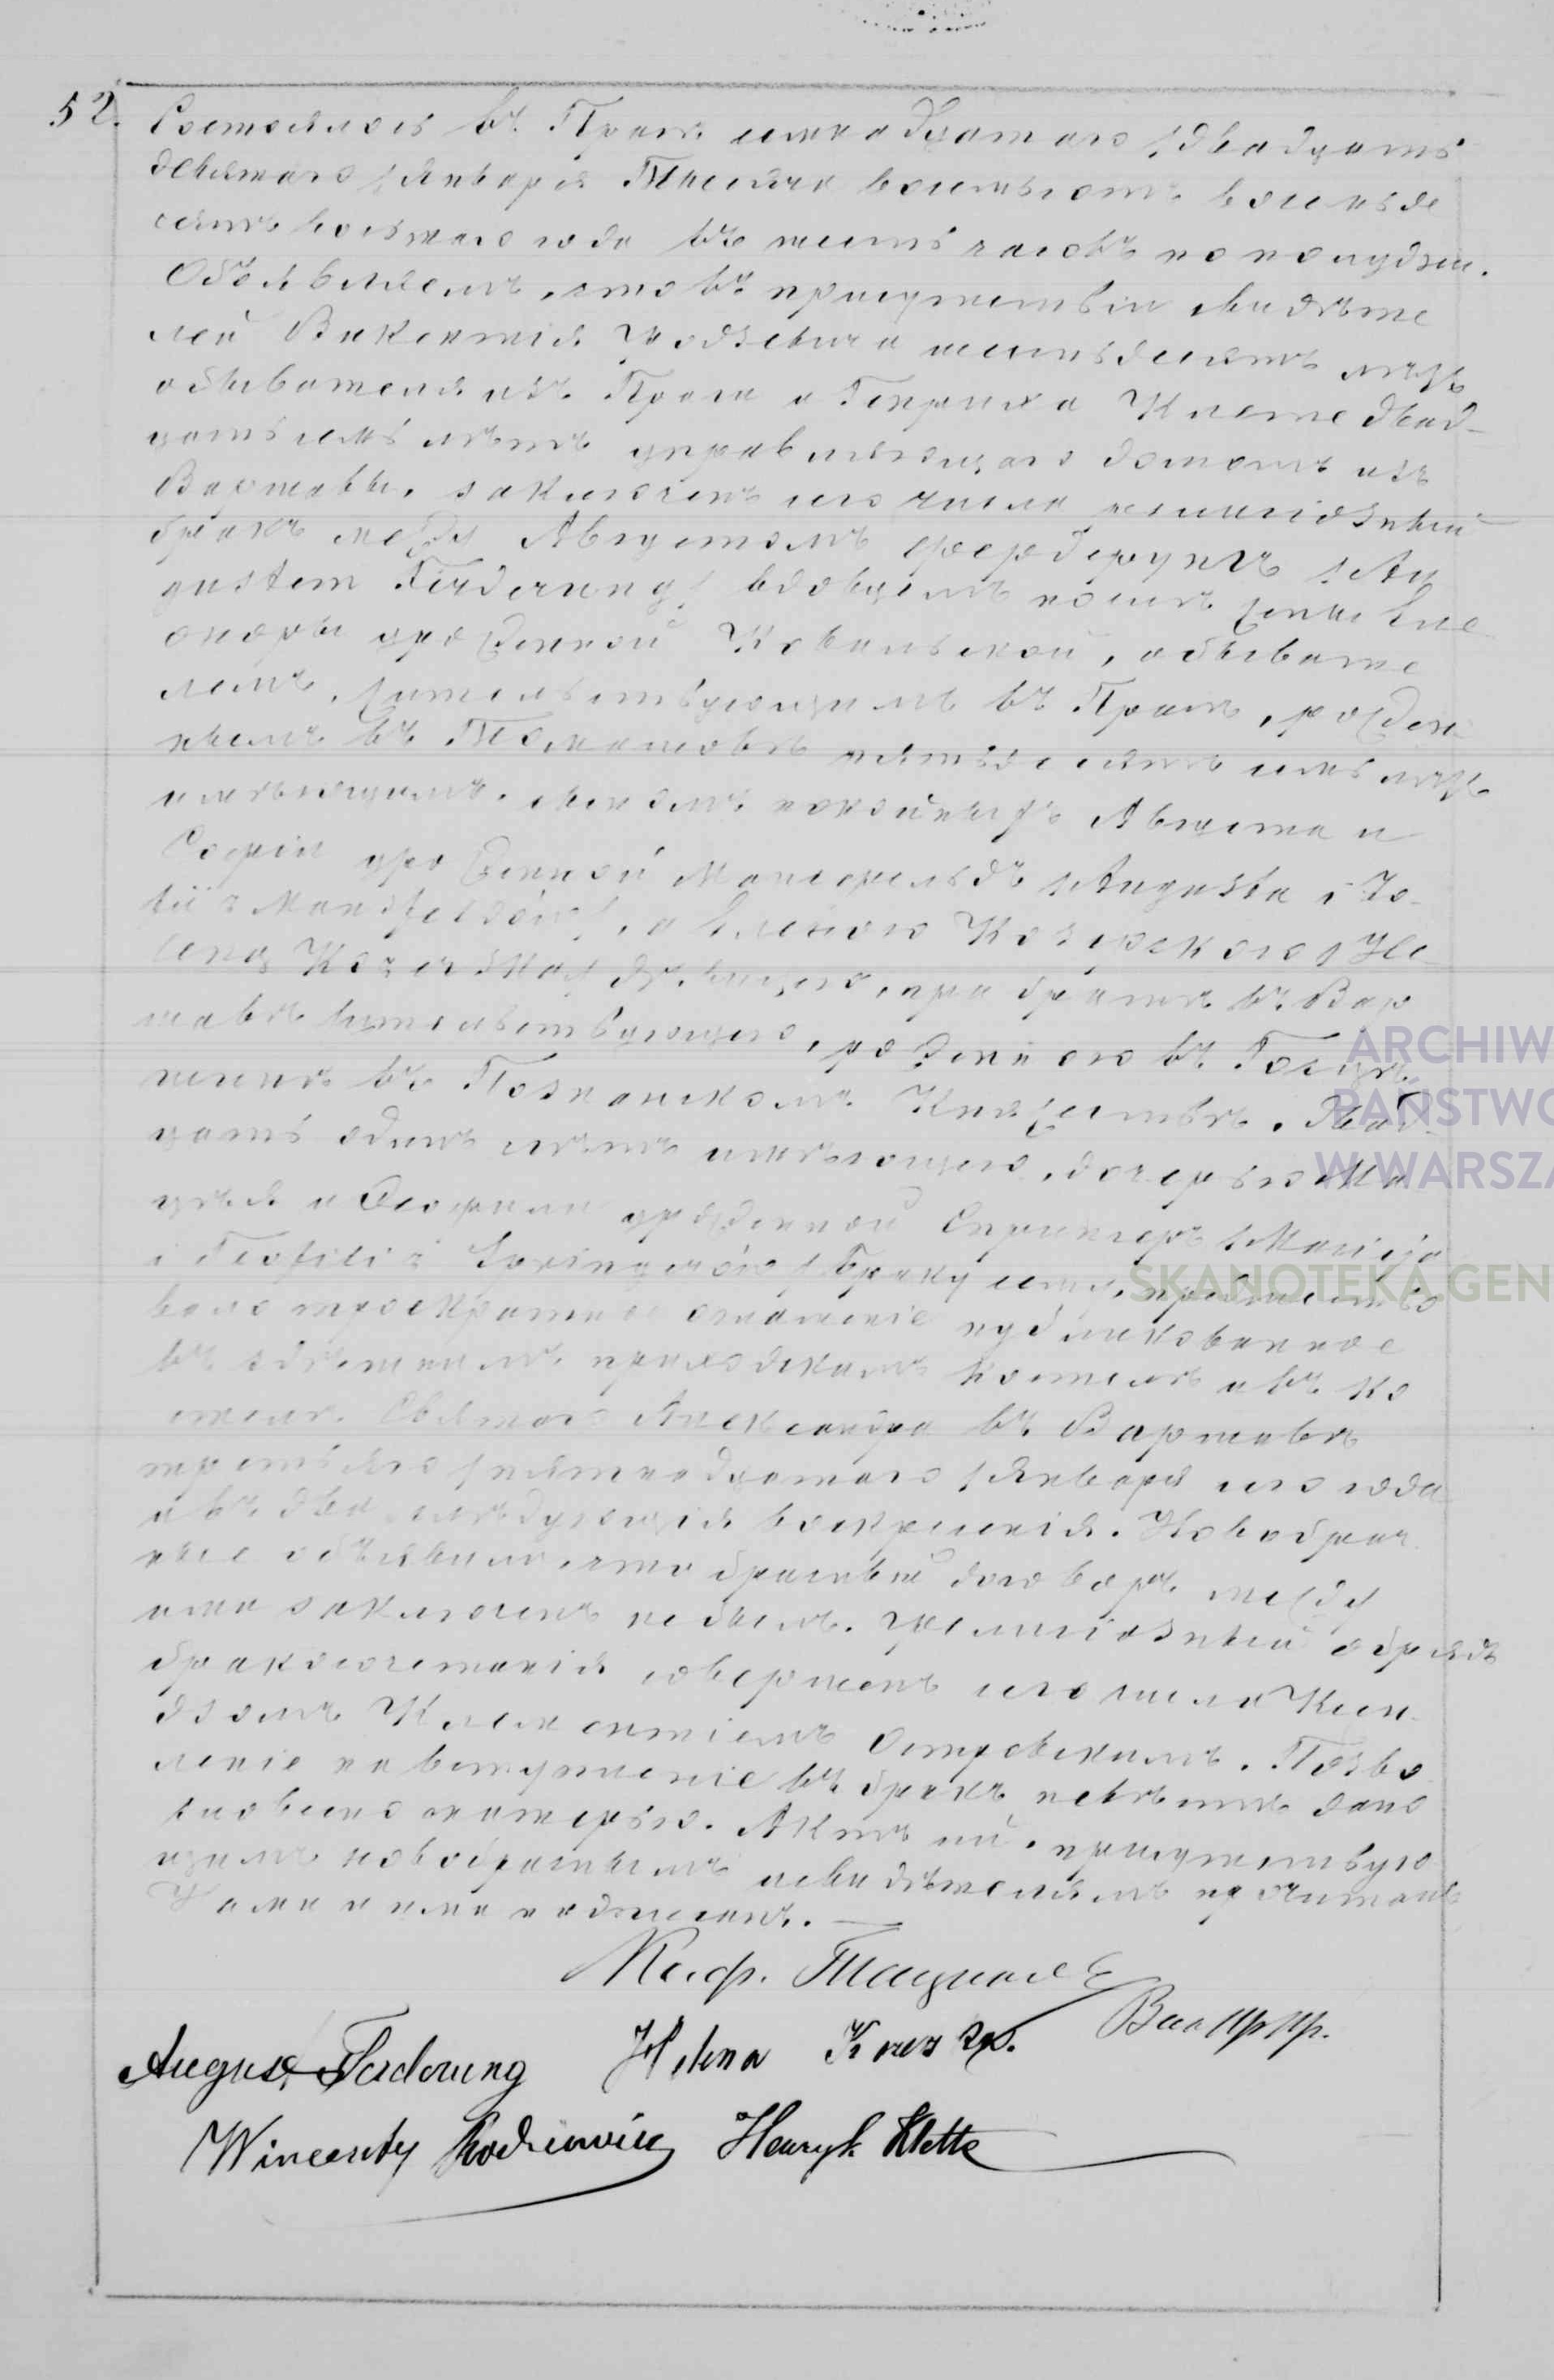 52.
Состоялось въ Прагѣ семнадцатаго /двадцать
девятаго/ Января Тысяча восемьсотъ восемьде
сятъ восьмаго года въ шесть часовъ по полудни.
Объявляемъ, что въ присутствіи свидѣте
лей Викентія Родзевича шестьдесятъ лѣтъ
обывателя изъ Праги и Генриха Клетте двад-
цать семь лѣтъ управляющаго домомъ изъ
Варшавы, заключенъ сего числа религіозный
бракъ между Августомъ Фердерунгъ /Au
gustem Ferderung/ вдовцемъ послѣ жены Еле
оноры урожденной Ковальской, обывате
лемъ, жительствующимъ въ Прагѣ, рожден
нымъ въ Томашовѣ пятьдесятъ семь лѣтъ
имѣющимъ, сыномъ покойныхъ Августа и
Софіи урожденной Мансфельдъ /Augusta i Zo-
fii z Mansfeldów/, а Еленою Козерскою /He-
leną Kozerską/ дѣвицею, при братѣ въ Вар
шавѣ жительствующею, рожденною въ
въ Познанскомъ Княжествѣ, двад-
цать одинъ лѣтъ имѣющею, дочерью Ма
цѣя и Ѳеофили урожденной Спрингеръ /Macieja
i Teofili z Springerów/ Браку сему предшество
вало троекратное оглашеніе публикованное
въ здѣшнемъ приходскомъ костелѣ и въ ко
стелѣ Святаго Александра въ Варшавѣ
третьяго /пятнадцатаго/ Января сего года
и въ два слѣдующія воскресенія. Новобрач
ные объявили, что брачный договоръ между
ими заключенъ не былъ. Религіозный обрядъ
бракосочетанія совершенъ сего числа Ксен-
дзомъ Климентіемъ Островскимъ. Позво
леніе на вступленіе въ бракъ невѣстѣ дано
словесно матерью. Актъ сей, присутствую
щимъ новобрачнымъ и свидѣтелямъ прочитанъ
Нами и ими подписанъ. —
August Ferderung Helena Kozerska.
Wincenty Rodziewicz Henryk Klette
ARCHIW
PAŃSTWO
W WARSZA
SKANOTEKA.GEN